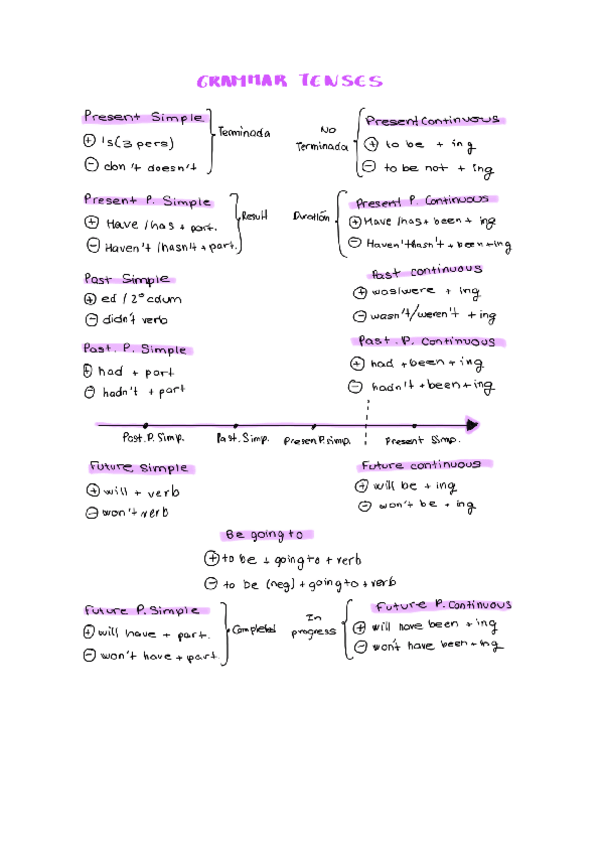 GRAMMAR TENSES
Present Simple
⊕ 's(3 pers)
⊖ don't doesn't
Terminada
No
Terminada
Present Continuous
⊕ to be + ing
⊖ to be not + ing
Present P. Simple
⊕ Have /has + part.
⊖ Haven't /hasn't + part.
Result
Duration
Present P. Continuous
⊕ Have /has + been + ing
⊖ Haven't hasn't + been + ing
Past Simple
⊕ ed / 2º colum
⊖ didn't verb
Past continuous
⊕ was/were + ing
⊖ wasn't/weren't + ing
Past. P. Simple
⊕ had + part
⊖ hadn't + part
Past. P. Continuous
⊕ had + been + ing
⊖ hadn't + been + ing
Past. P. Simp. Past. Simp. Presen P. simp. Present Simp.
Future simple
⊕ will + verb
⊖ won't verb
Future continuous
⊕ will be + ing
⊖ won't be + ing
Be going to
⊕ to be + going to + verb
⊖ to be (neg) + going to + verb
Future P. Simple
⊕ will have + part.
⊖ won't have + part.
Completed
In
progress
Future P. Continuous
⊕ will have been + ing
⊖ won't have been + ing